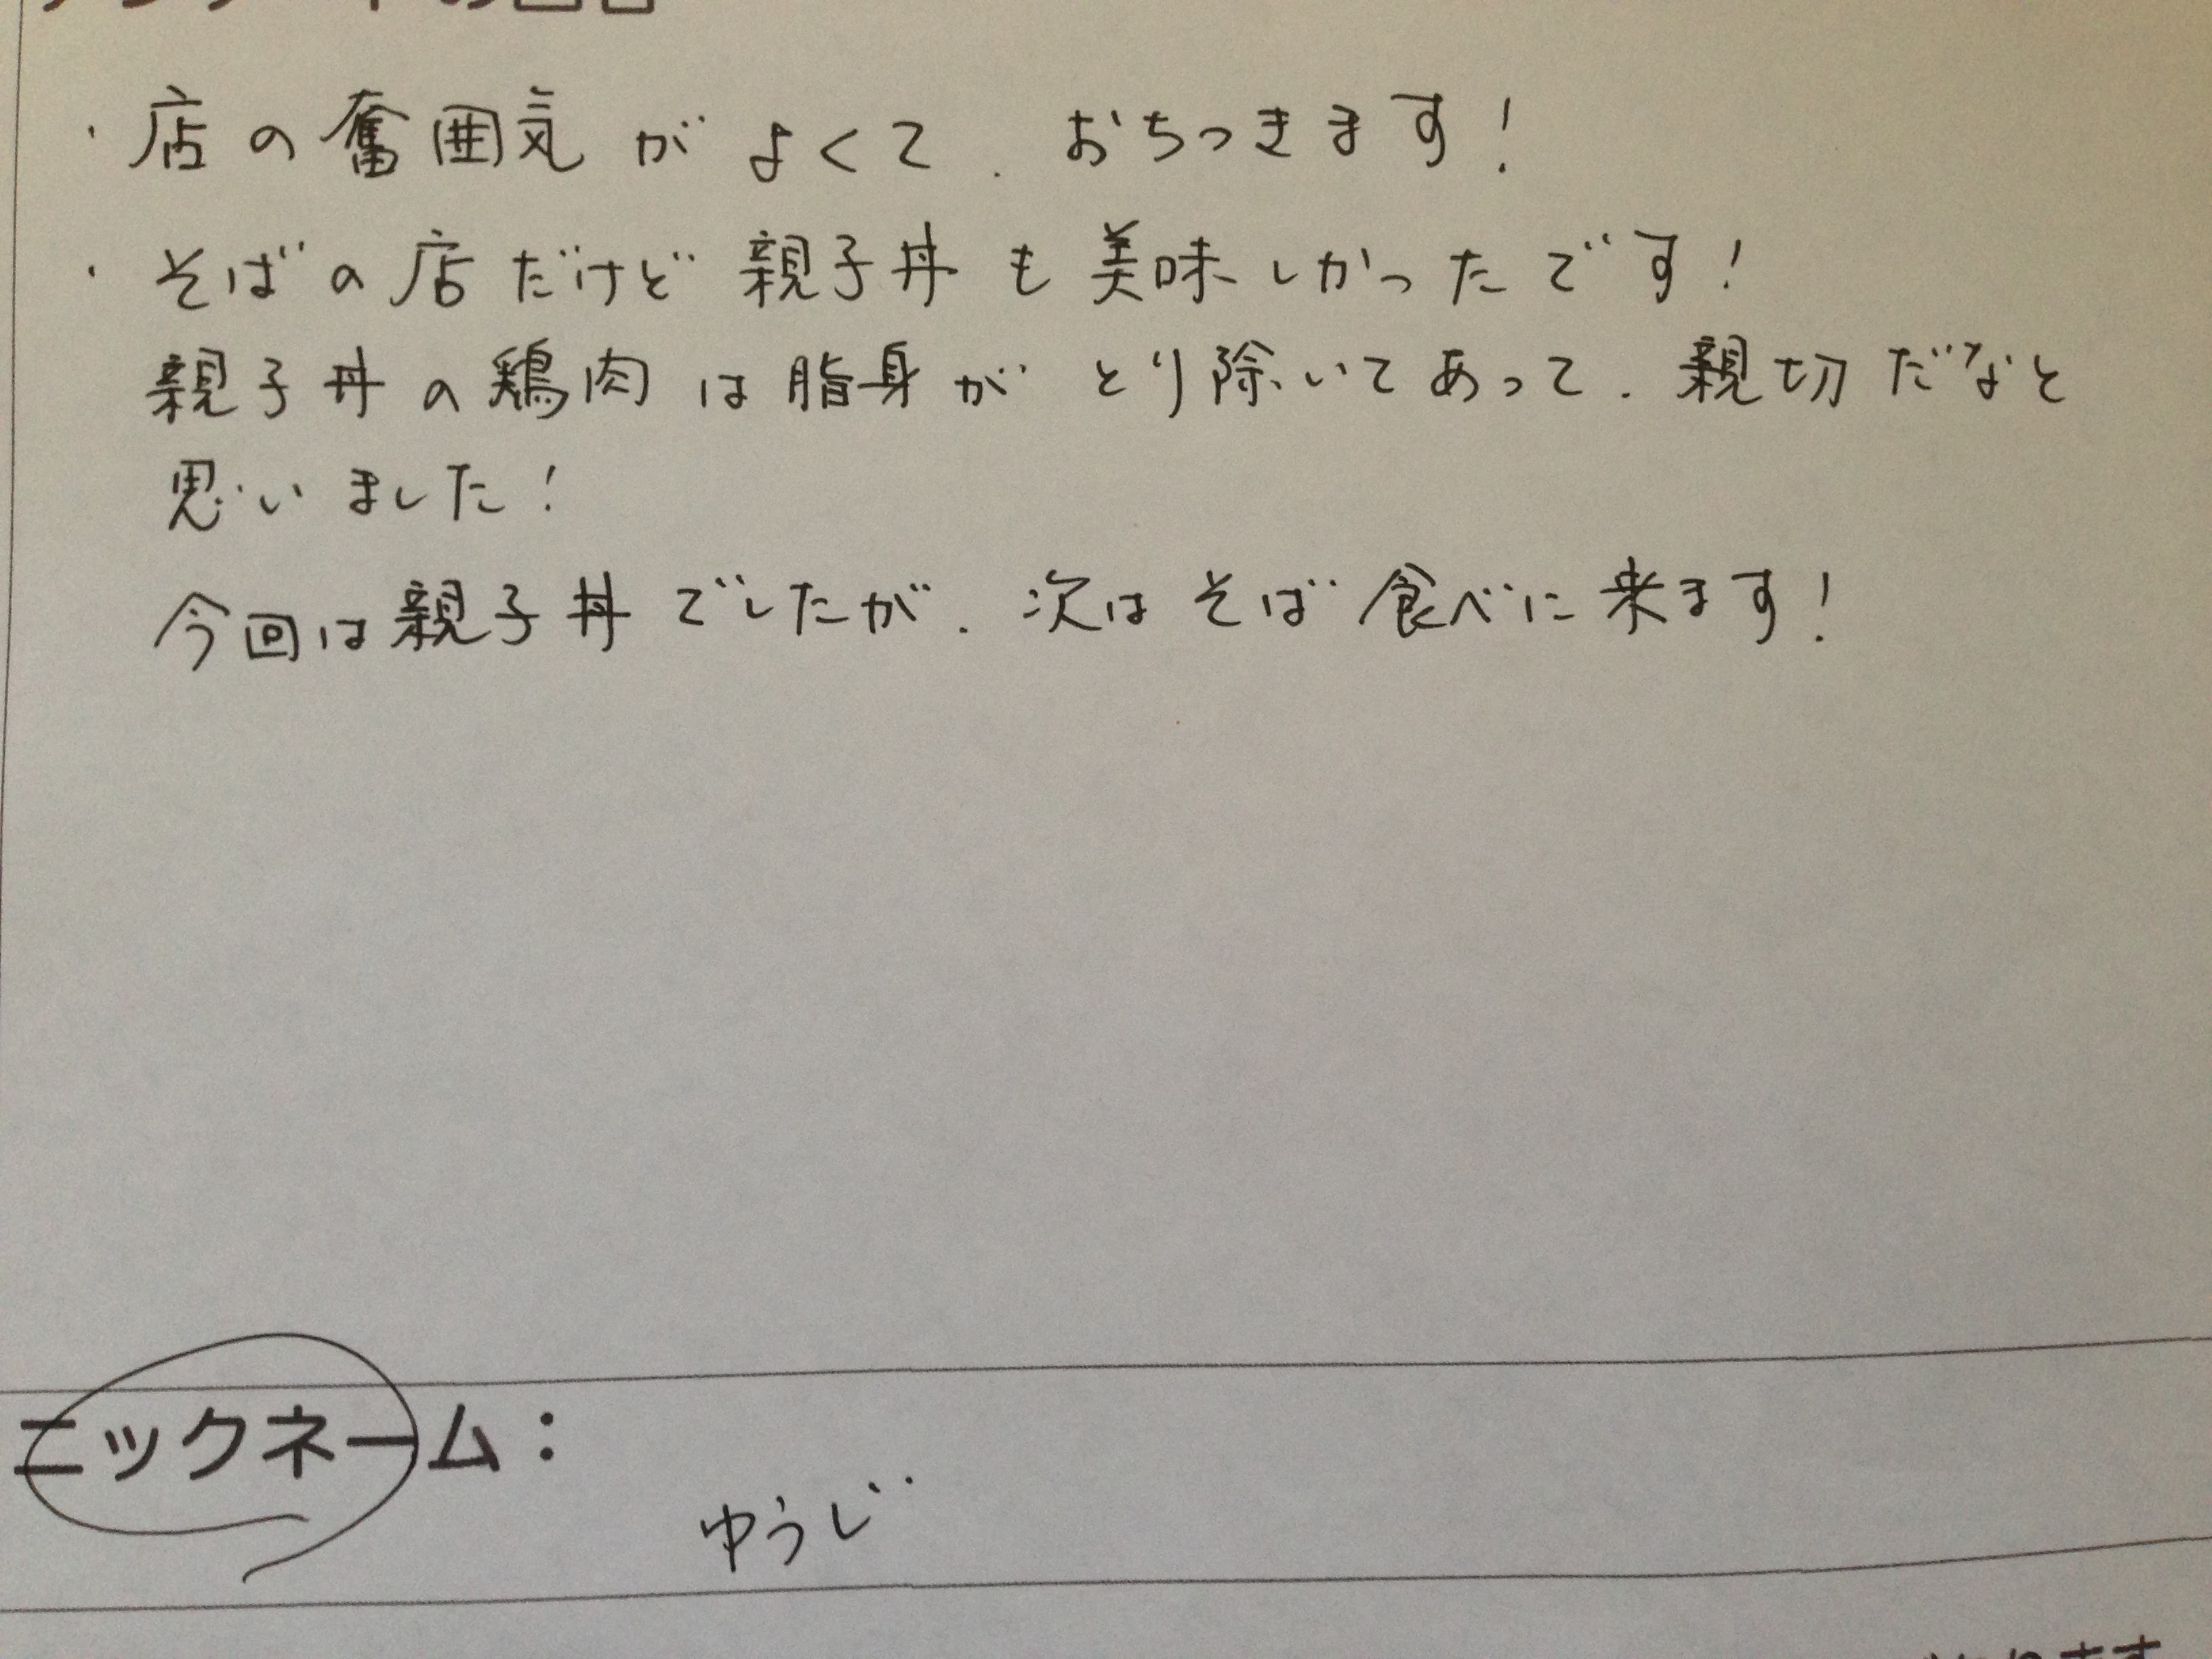 ・店の奮囲気がよくて、おちつきます！
・そばの店だけど親子丼も美味しかったです！
親子丼の鶏肉は脂身がとり除いてあって、親切だなと
思いました！
今回は親子丼でしたが、次はそば食べに来ます！
ニックネーム：
ゆうじ